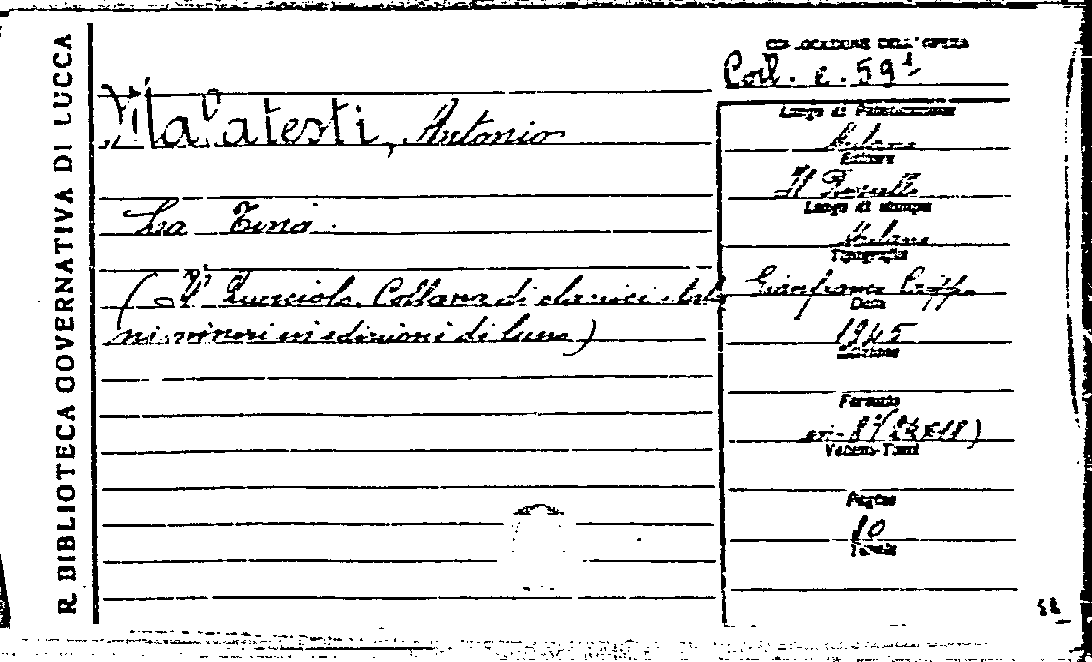 R. BIBLIOTECA GOVERNATIVA DI LUCCA
COLLOCAZIONE DELL'OPERA
Coll. c. 59¹
Malatesti, Antonio
La Tina.
(Collana di classici italia
ni minori in edizioni di lusso)
Luogo di Pubblicazione
Milano
Editore
Il
Luogo di stampa
Milano
Tipografia
Gianfranco
Data
1945
Edizione
Formato
in-8° (24x18)
Volumi-Tomi
Pagine
10
Tavole